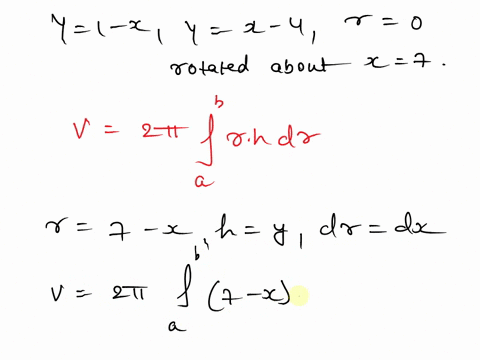 y = 1 - x, y = x - 4, r = 0
rotated about x = 7.
V = 2π ∫ₐᵇ r.h dr
r = 7 - x, h = y, dr = dx
V = 2π ∫ₐᵇ' (7 - x)